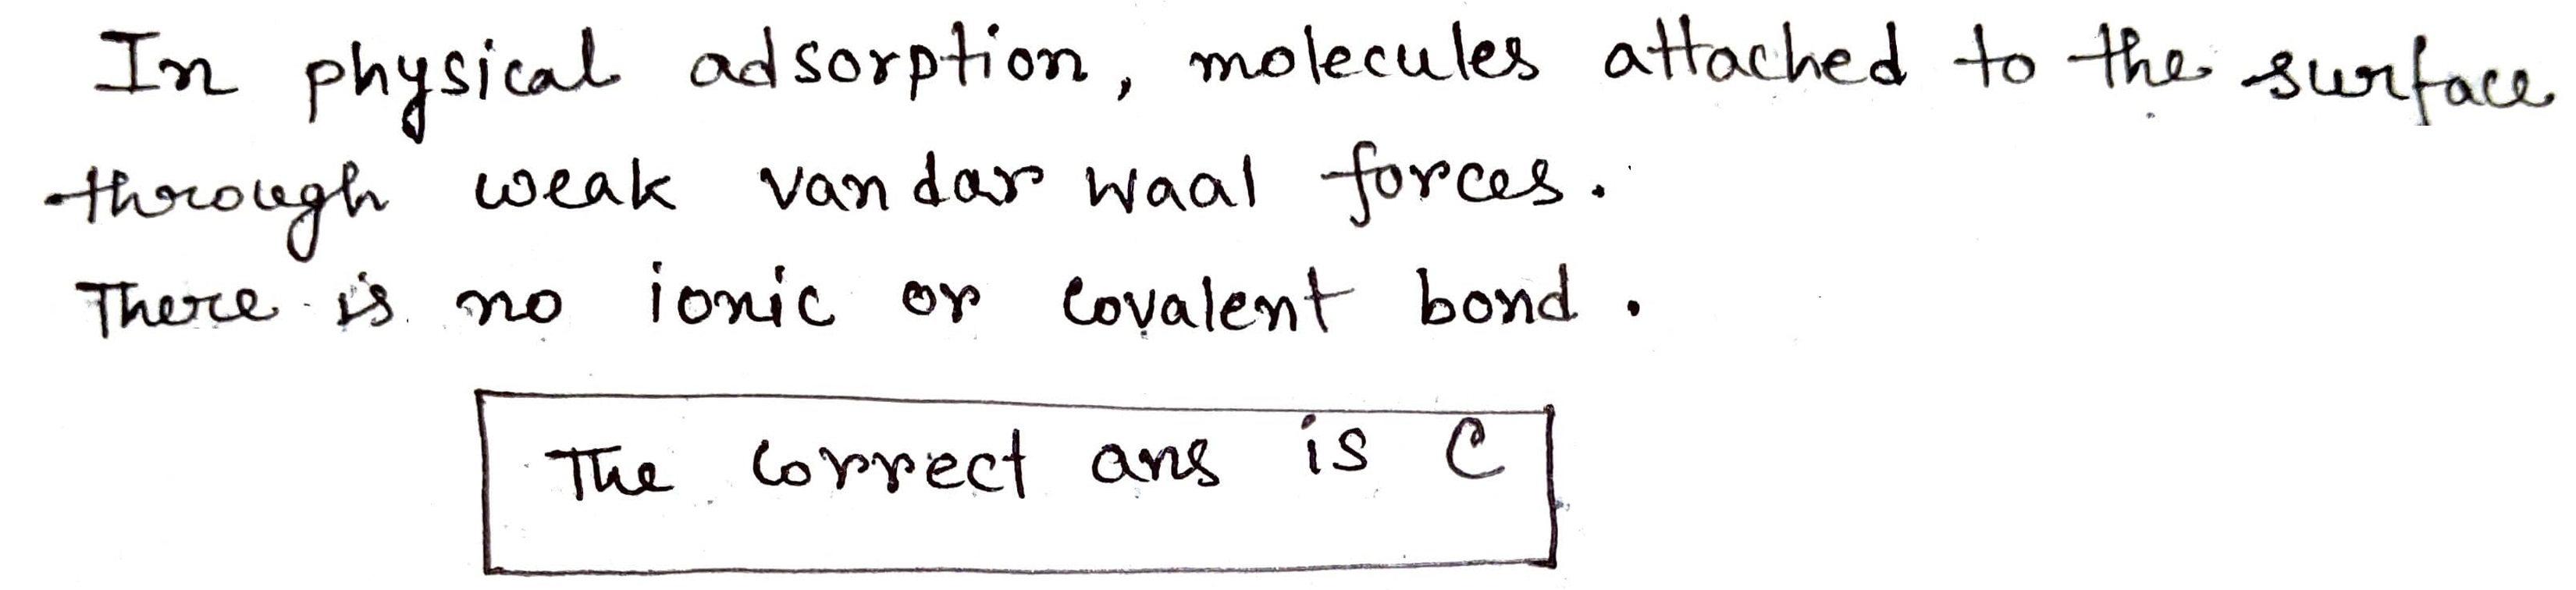 In physical adsorption, molecules attached to the surface
through weak van dar waal forces.
There is no ionic or covalent bond.
The correct ans is C